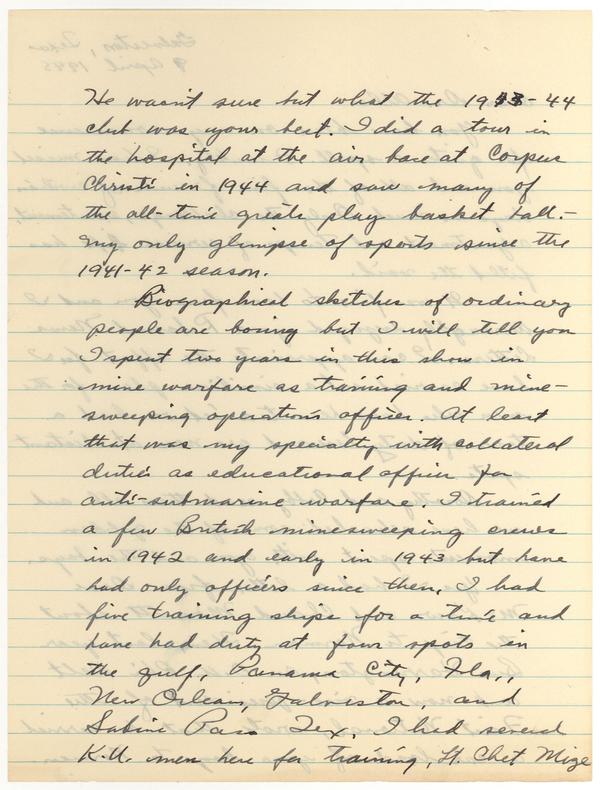 He wasn't sure but what the 1943-44
club was your best. I did a tour in
the hospital at the air base at Corpus
Christi in 1944 and saw many of
the all-time greats play basket ball.-
my only glimpse of sports since the
1941-42 season.
Biographical sketches of ordinary
people are boring but I will tell you
I spent two years in this show in
mine warfare as training and mine-
sweeping operations officer. At least
that was my specialty with collateral
duties as educational officer for
anti-submarine warfare. I trained
a few British minesweeping crews
in 1942 and early in 1943 but have
had only officers since then. I had
five training ships for a time and
have had duty at four spots in
the gulf, Panama City, Fla.,
New Orleans, Galveston, and
Sabine Pass Tex. I had several
K.U. men here for training, Lt. Chet Mize